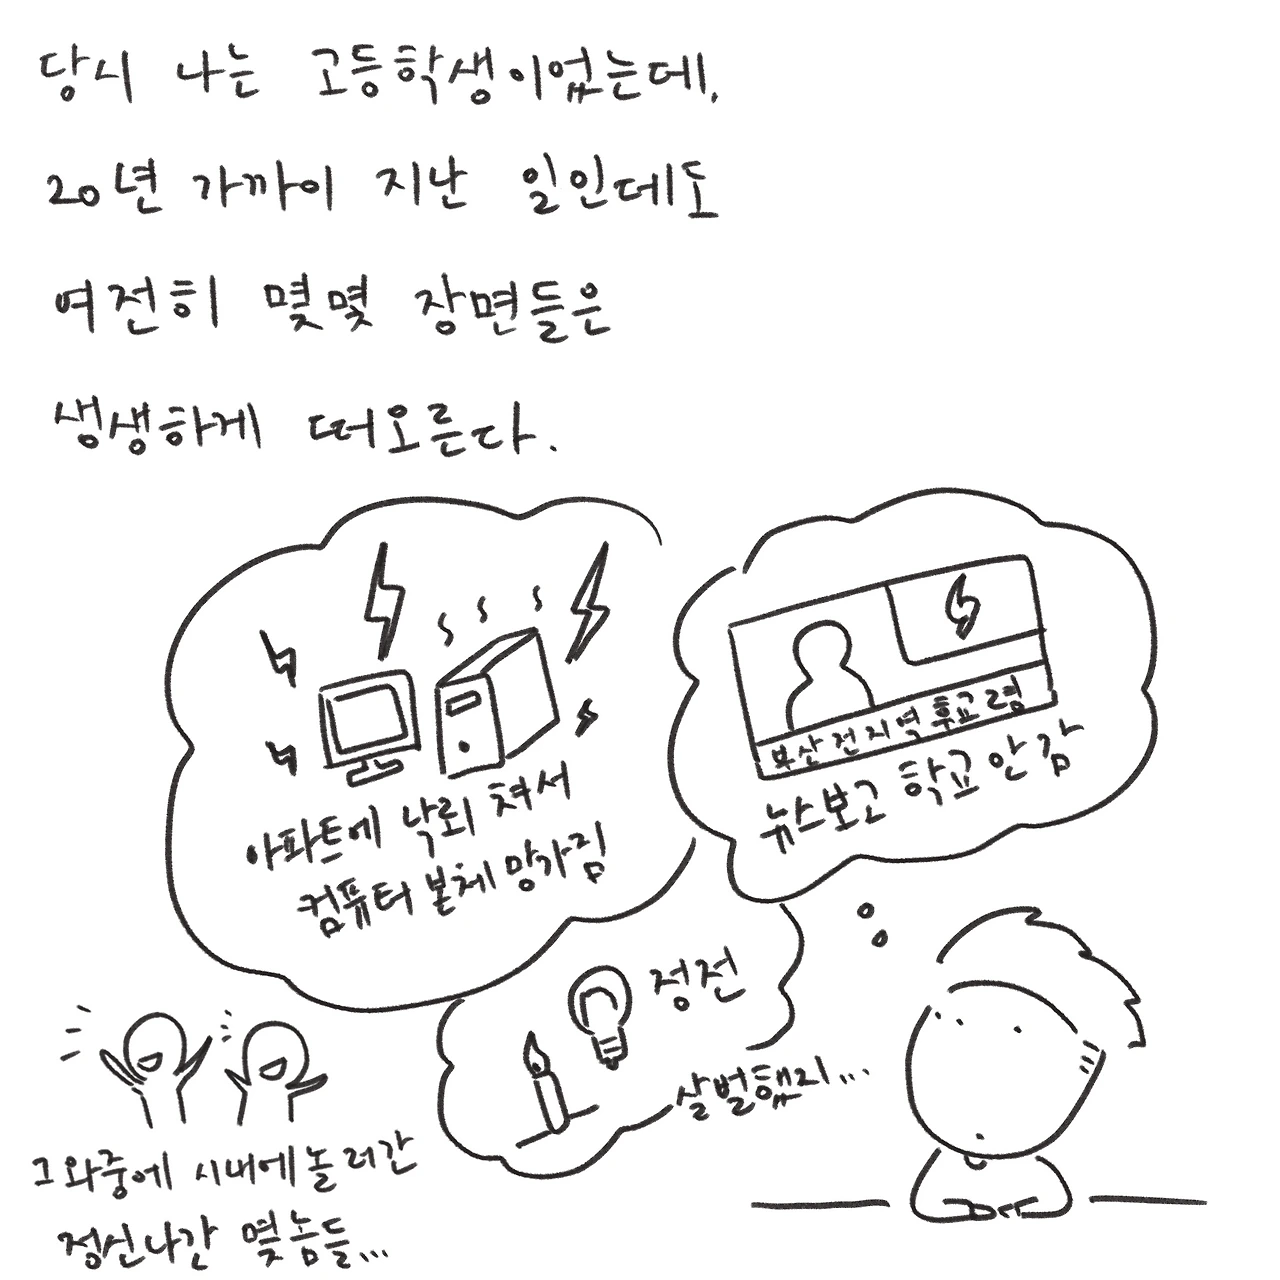 당시 나는 고등학생이었는데,
20년 가까이 지난 일인데도
여전히 몇몇 장면들은
생생하게 떠오른다.
아파트에 낙뢰 쳐서
컴퓨터 본체 망가짐
부산 전 지역 휴교령
뉴스보고 학교 안 감
정전
살벌했지...
그 와중에 시내에 놀러간
정신나간 몇 놈들...